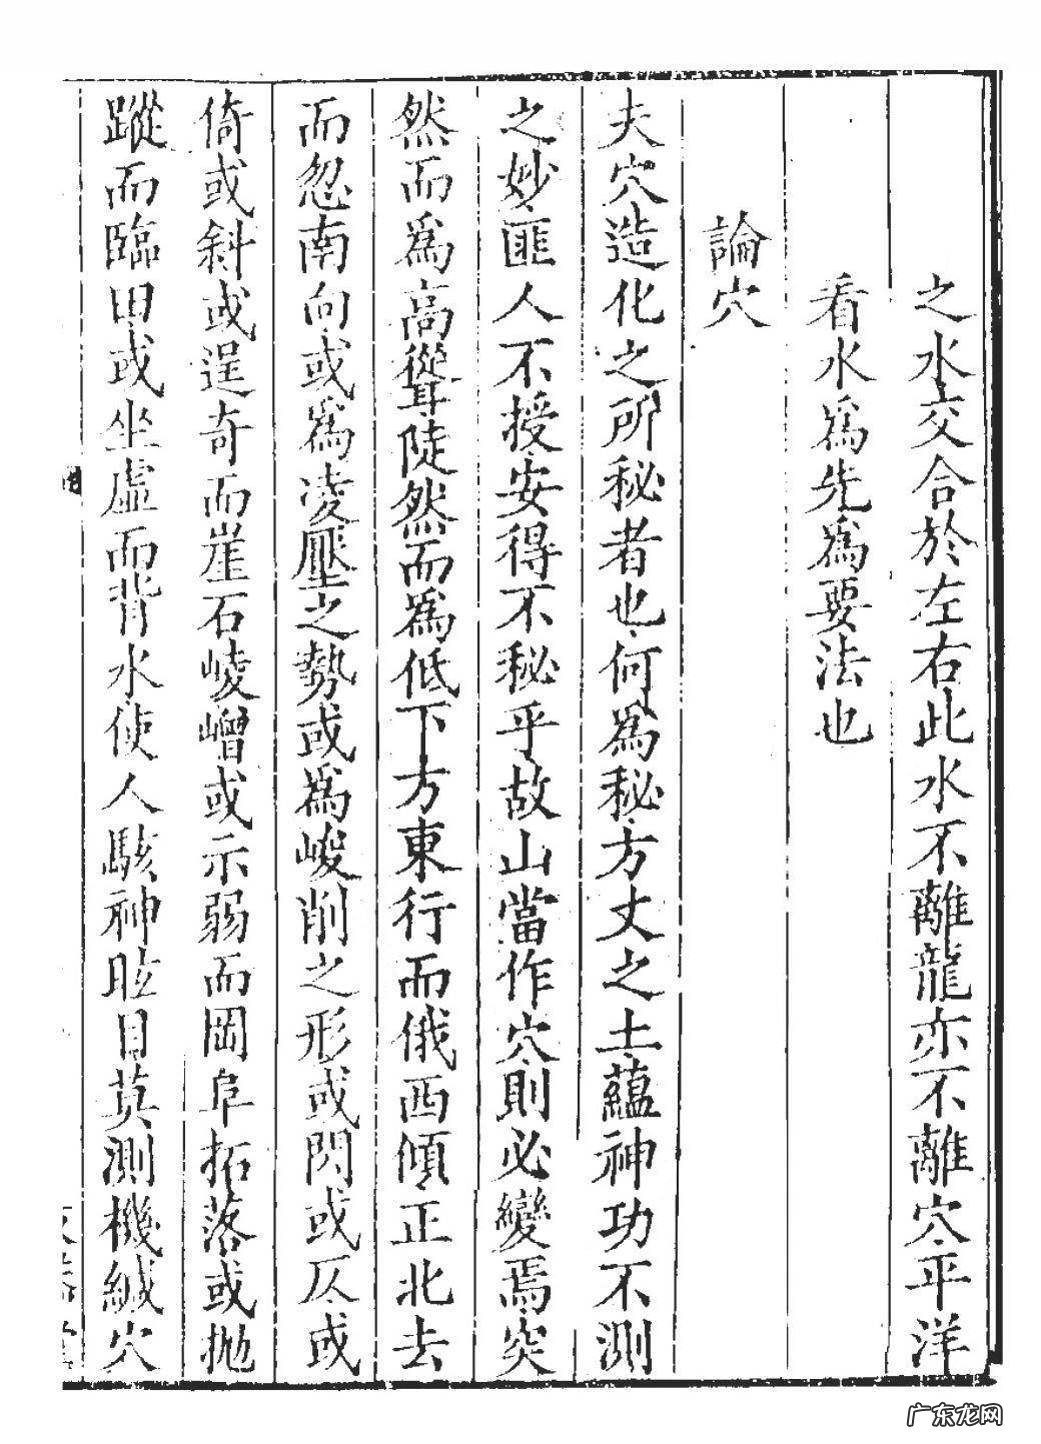 之水交合於左右此水不離龍亦不離穴平洋
看水爲先爲要法也
論穴
夫穴造化之所秘者也何爲秘方丈之土蘊神功不測
之妙匪人不授安得不秘乎故山當作穴則必變焉突
然而爲高聳陡然而爲低下方東行而俄西傾正北去
而忽南向或爲凌壓之勢或爲峻削之形或閃或仄或
倚或斜或逞奇而崖石崚嶒或示弱而岡阜拓落或抛
蹤而臨田或坐虛而背水使人駭神眩目莫測機緘穴
广东龙网